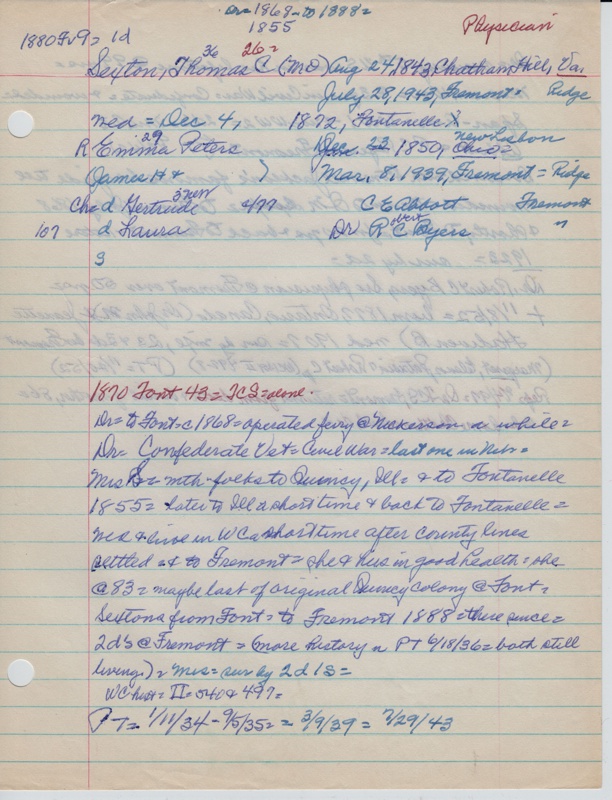 Dr = 1868 - to 1888 =
1855
Physician
1880 Fv9 = 1d
36 26 =
Sexton, Thomas C (MD) Aug 24, 1843, Chatham Hill, Va.
July 28, 1943, Fremont = Ridge
med = Dec 4, 1872, Fontanelle X
29 New Lisbon
R Emma Peters Dec. 22 1850, Ohio =
James H + ) Mar. 8, 1939, Fremont = Ridge
3 New
Ch = d Gertrude 4/77 C E Abbott Fremont
107 d Laura Dr Robert C Byers "
S
1870 Font 43 = TCS = alone.
Dr = to Font = c 1868 = operated ferry @ Nickerson a while =
Dr = Confederate Vet = Civil War = last one in Neb =
Mrs S = with folks to Quincy, Ill = & to Fontanelle
1855 = later to Ill a short time & back to Fontanelle =
med & live in WC a short time after county lines
settled = & to Fremont = she & hus in good health = she
@ 83 = maybe last of original Quincy Colony @ Font =
Sextons from Font = to Fremont 1888 = there since =
2 d's @ Fremont = (more history n PT 6/18/36 = both still
living.) = Mrs = sur by 2 d 1 S =
WC Hist = II = 540 & 497 =
PT = 1/11/34 - 9/5/35 = = 3/9/39 = 7/29/43